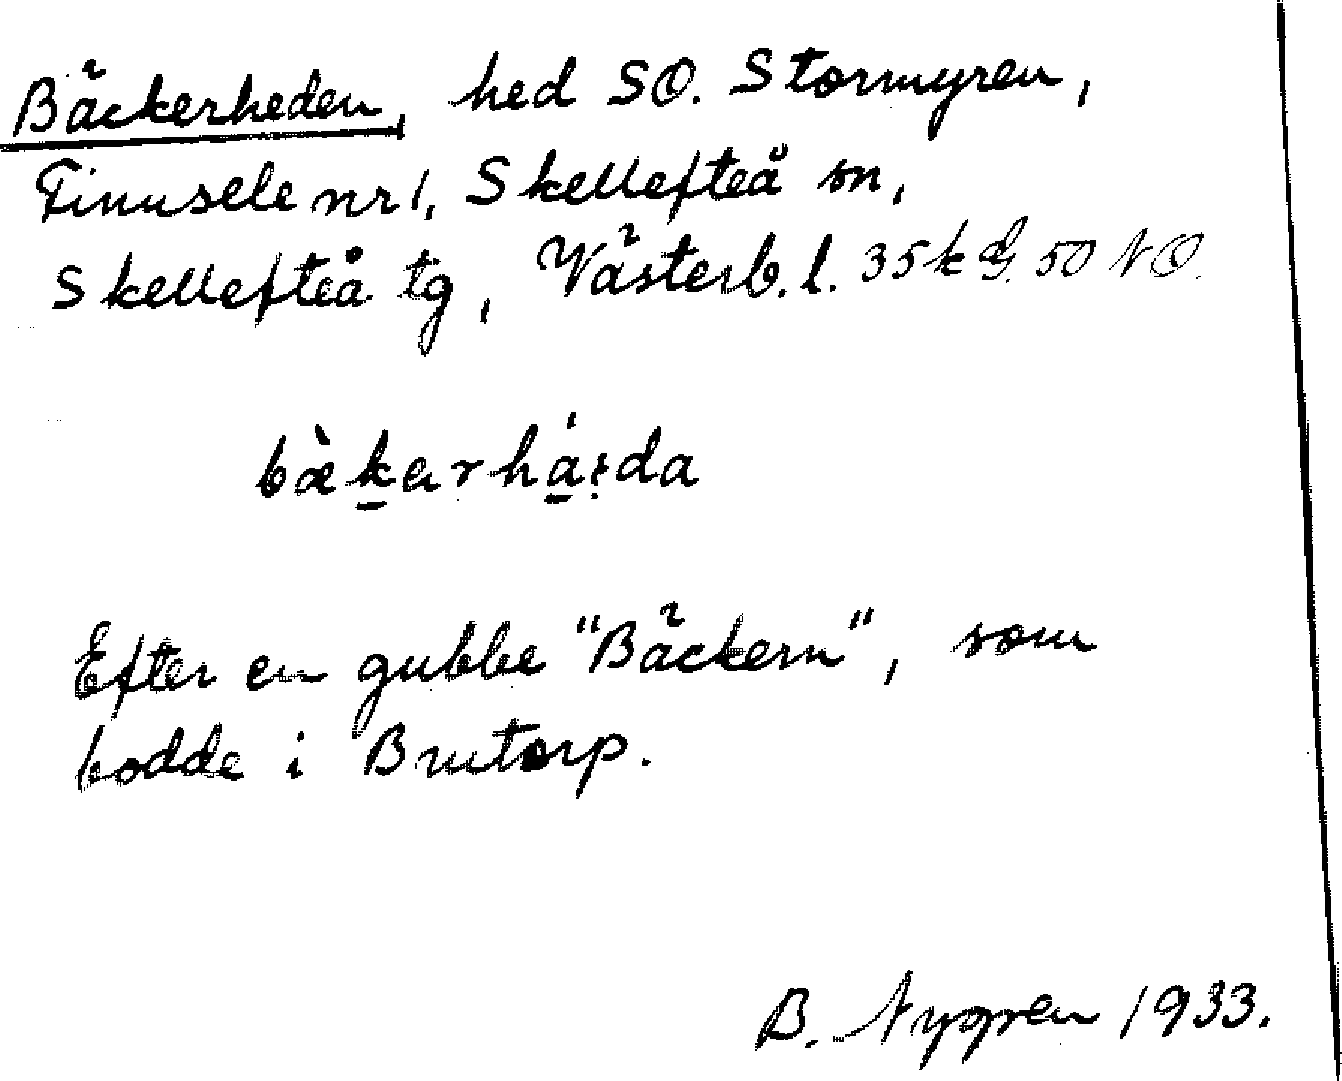 Bäckerheden, hed SO. Stormyren,
Finnsele nr 1, Skellefteå sn,
Skellefteå tg, Västerb. l. 35 k G. 50 NO.
bækarhá:da
Efter en gubbe "Bäckern", som
bodde i Brutorp.
B. Nygren 1933.